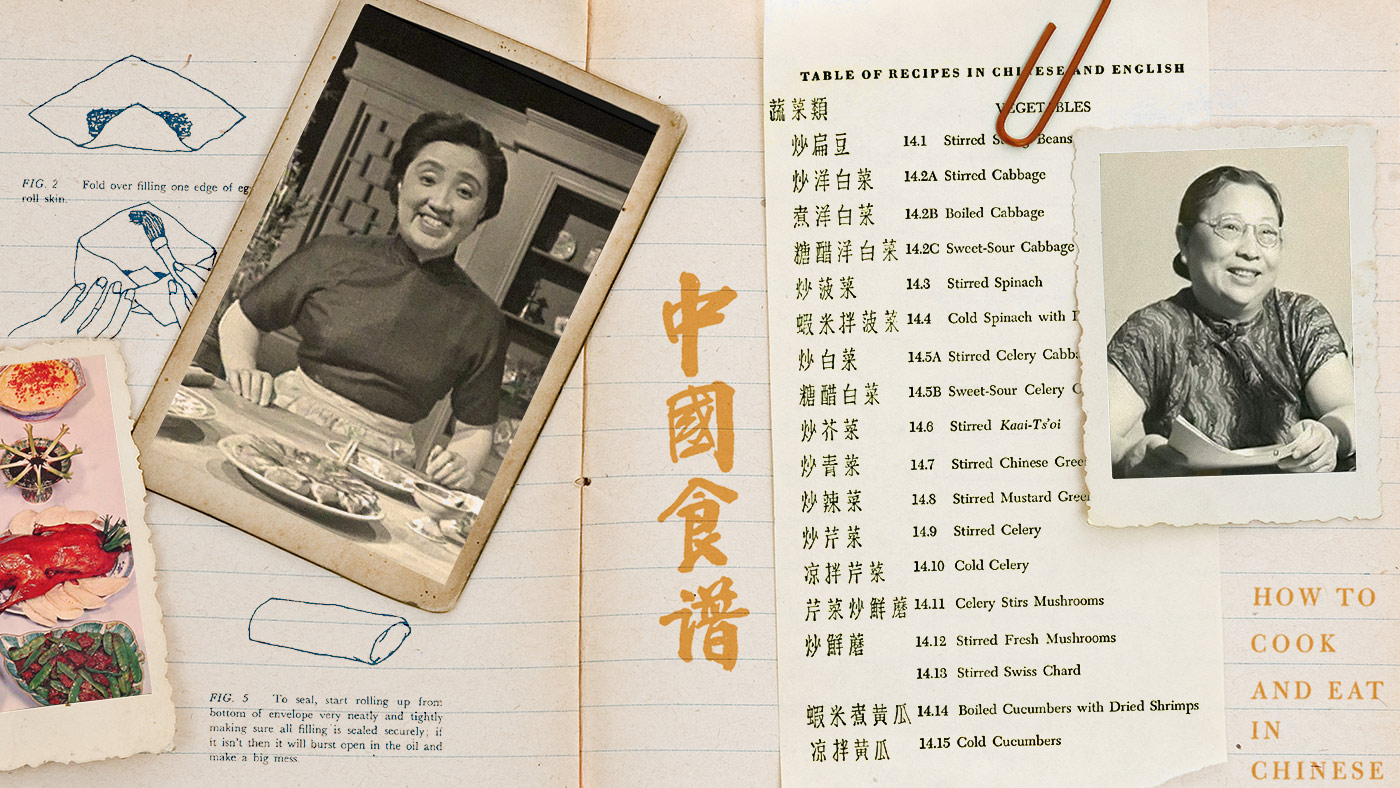 FIG. 2 Fold over filling one edge of eg
roll skin.
FIG. 5 To seal, start rolling up from
bottom of envelope very neatly and tightly
making sure all filling is sealed securely; if
it isn't then it will burst open in the oil and
make a big mess.
中
國
食
谱
TABLE OF RECIPES IN CHINESE AND ENGLISH
蔬菜類 VEGETABLES
炒扁豆 14.1 Stirred String Beans
炒洋白菜 14.2A Stirred Cabbage
煮洋白菜 14.2B Boiled Cabbage
糖醋洋白菜 14.2C Sweet-Sour Cabbage
炒菠菜 14.3 Stirred Spinach
蝦米拌菠菜 14.4 Cold Spinach with
炒白菜 14.5A Stirred Celery Cabba
糖醋白菜 14.5B Sweet-Sour Celery C
炒芥菜 14.6 Stirred Kaai-Ts'oi
炒青菜 14.7 Stirred Chinese Gree
炒辣菜 14.8 Stirred Mustard Gree
炒芹菜 14.9 Stirred Celery
凉拌芹菜 14.10 Cold Celery
芹菜炒鮮蘑 14.11 Celery Stirs Mushrooms
炒鮮蘑 14.12 Stirred Fresh Mushrooms
14.13 Stirred Swiss Chard
蝦米煮黄瓜 14.14 Boiled Cucumbers with Dried Shrimps
凉拌黄瓜 14.15 Cold Cucumbers
HOW TO
COOK
AND EAT
IN
CHINESE